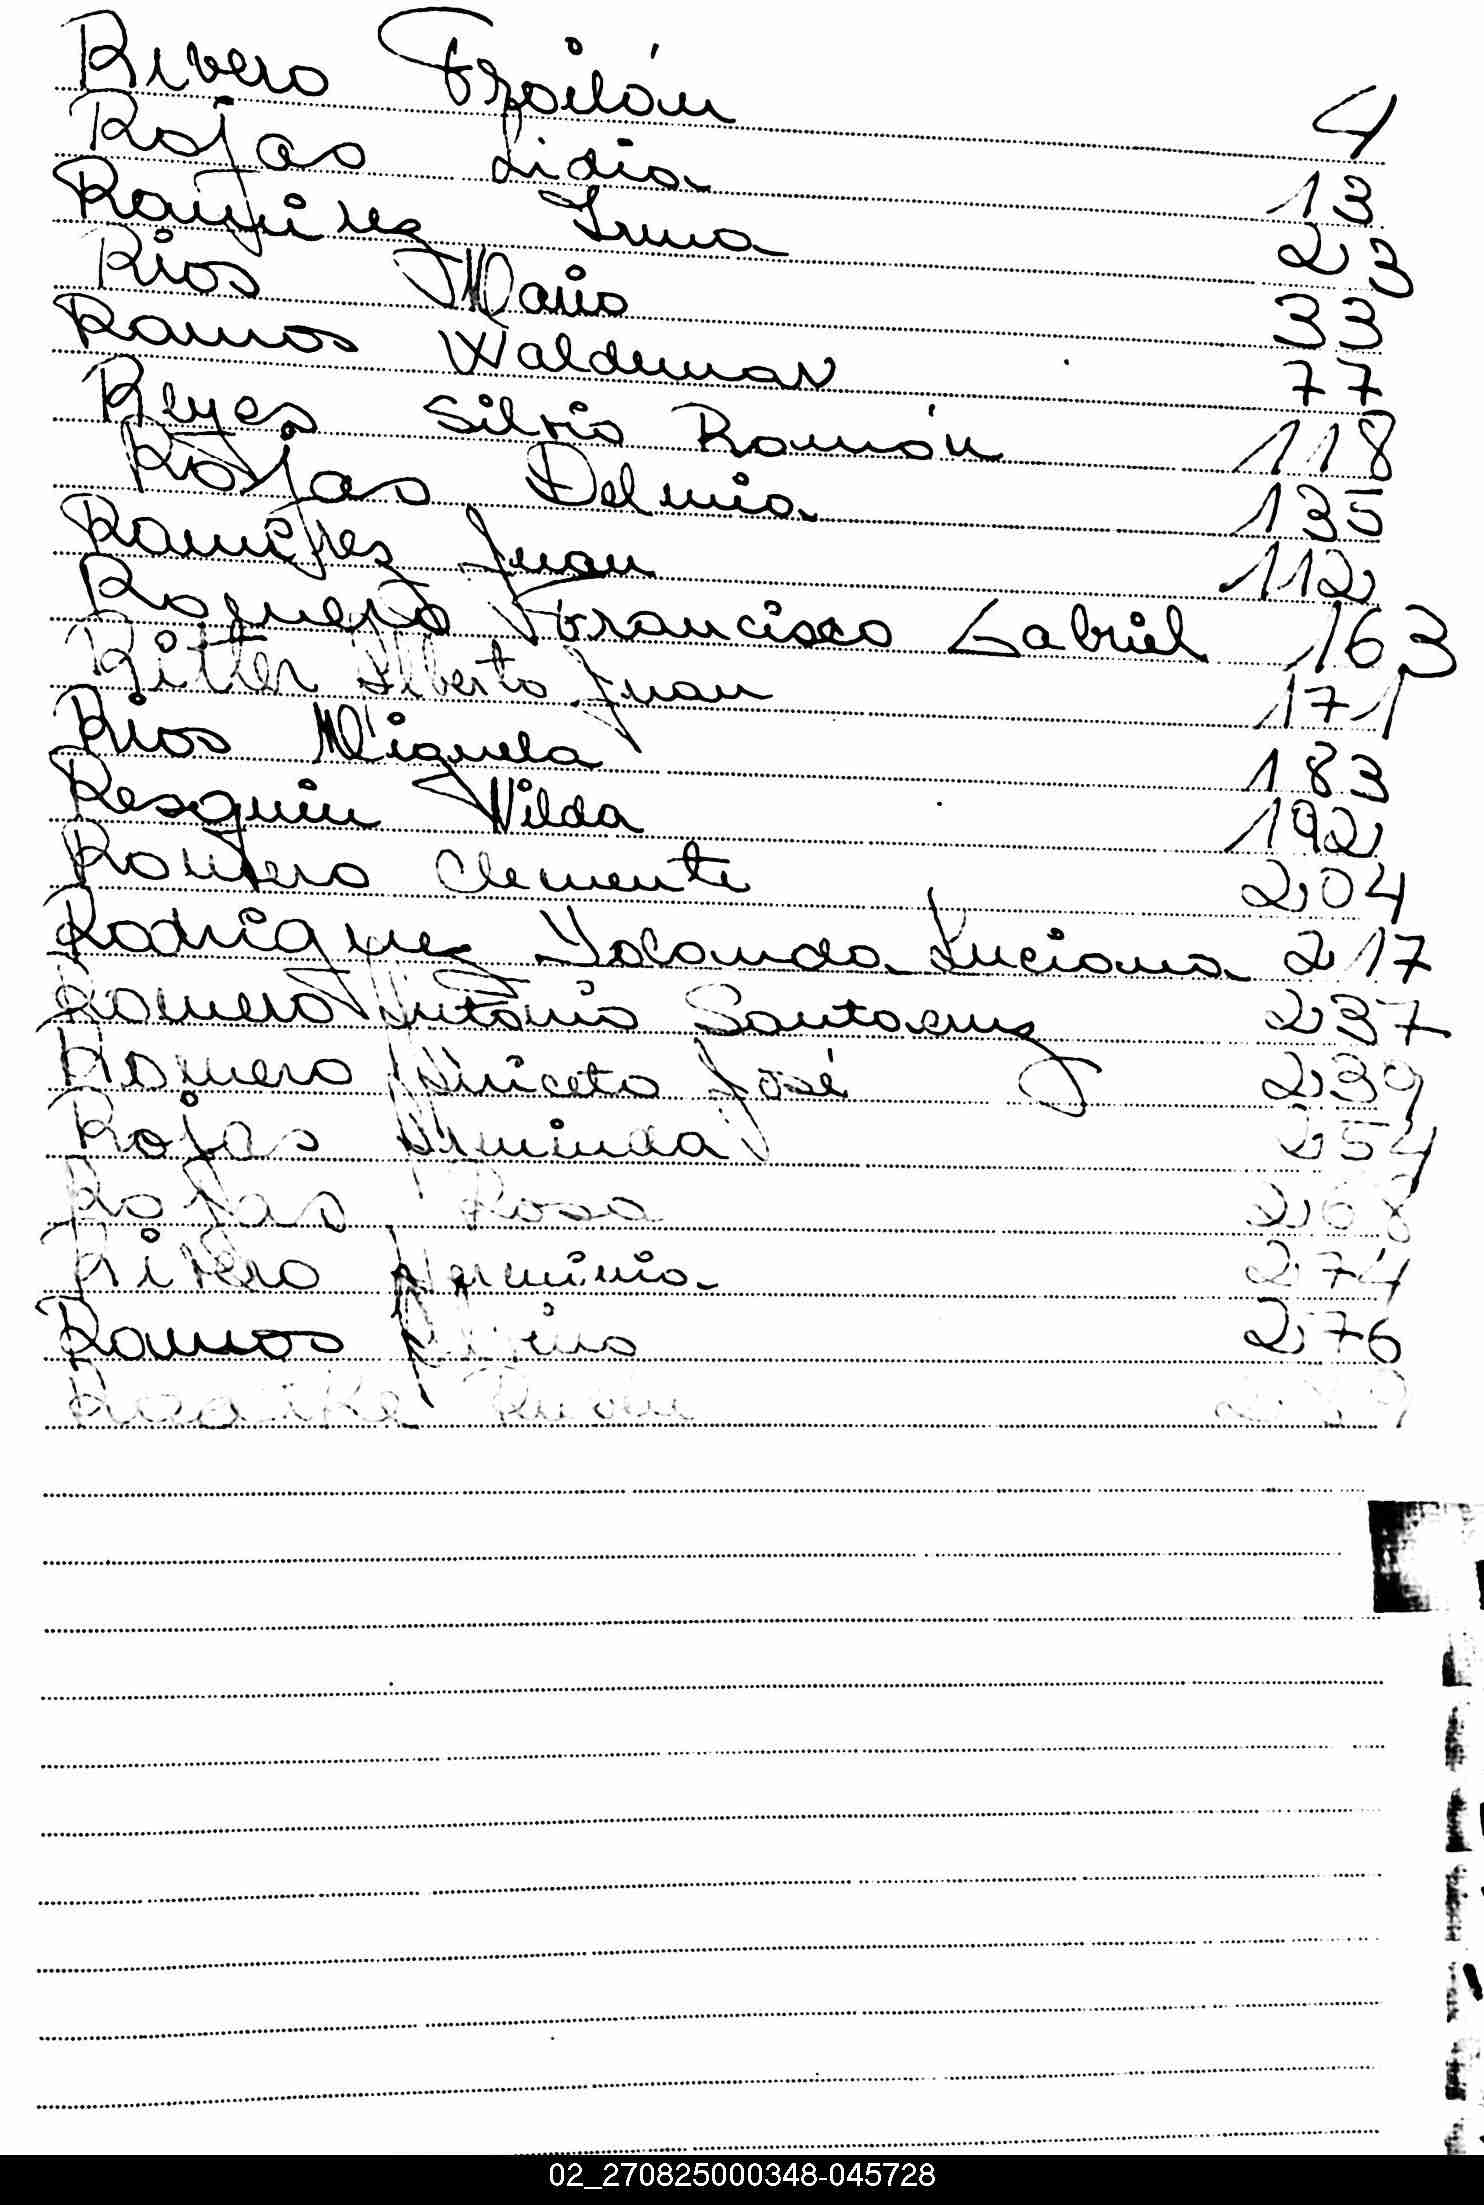 Rivero Froilán 4
Rojas Lidia 13
Ramirez Irma 23
Rios Mario 33
Ramos Waldemar 77
Reyes Silvio Ramón 118
Rojas Delmia 135
Ramirez Juan 112
Roquero Francisco Gabriel 163
Ritter Alberto Juan 171
Rios Miguela 183
Resquin Nilda 192
Romero Clemente 204
Rodriguez Yolanda Luciana 217
Romero Antonio Santacruz 237
Romero Aniceto José 239
Rojas Arminda 254
Rojas Rosa 268
Rivero Herminia 274
Ramos 276
02_270825000348-045728